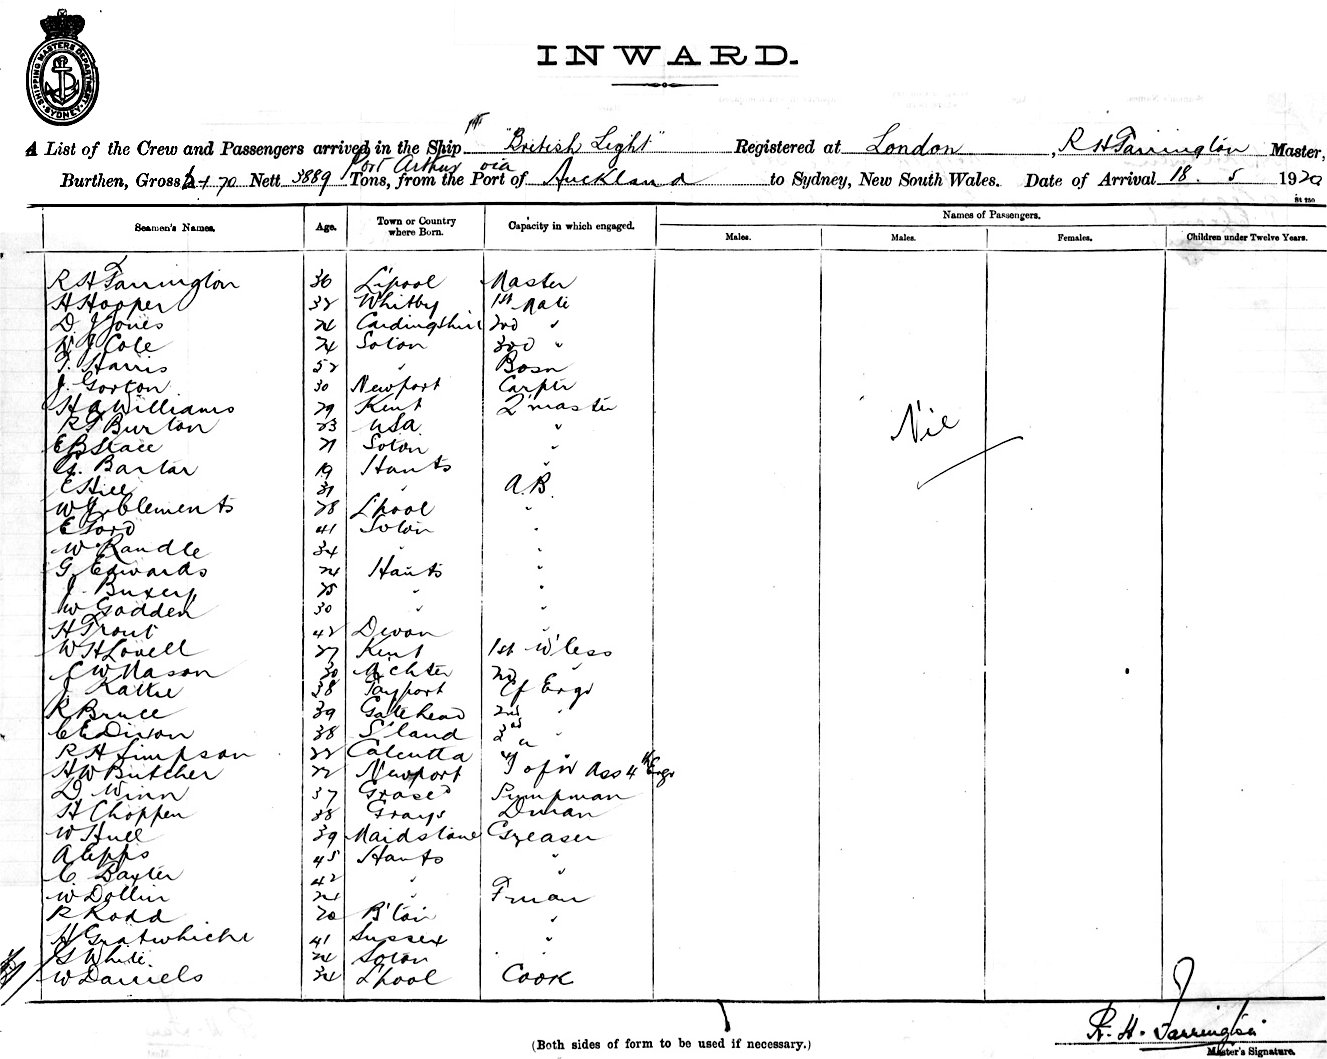 SHIPPING MASTERS DEPARTMENT SYDNEY
INWARD.
A List of the Crew and Passengers arrived in the Ship "British Light" Registered at London, R H Farrington Master,
Burthen, Gross 70 Nett 3889 Tons, from the Port of Port Arthur via Auckland to Sydney, New South Wales. Date of Arrival 18. 5 1920
Seamen's Names. Age. Town or Country where Born. Capacity in which engaged. Names of Passengers.
Males. Males. Females. Children under Twelve Years.
R H Farrington 36 L'pool Master
H Hooper 32 Whitby 1st Mate
D J Jones 24 Cardinganshire 2nd "
Cole 24 Soton 3rd "
F. Harris 52 " Bosn
J. Gorton 30 Newport Carptr
H A Williams 29 Kent Q'master
R F Burton 23 USA "
E B Stace 21 Soton "
G. Bartar 19 Hants "
E Hill 31 " A.B.
W J Clements 28 L'pool "
E Ford 41 Soton "
W Randle 34 " "
G. Edwards 24 Hants "
J. Buxey 25 " "
W Godden 30 " "
H Trout 42 Devon "
W H Lovell 27 Kent 1st W'less
C W Mason 30 M'chter 2nd "
J Rattie 38 Tayport Cf Engr
R Bruce 39 Gatehead 2nd "
C E Dixon 38 S'land 3rd "
R H Simpson 22 Calcutta 4th "
H W Butcher 22 Newport Ass 4th Engr
D Winn 37 Pumpman
H Choppen 38 Grays Dman
W Hull 39 Maidstone Greaser
A Epps 45 Hants "
C Baxter 42 " "
W Dollin 24 " Fman
R Rodd 20 "
H Gratwhiche 41 Sussex "
G White 24 Soton
W Daniels 34 L'pool Cook
Nil
R. H. Farrington
Master's Signature.
(Both sides of form to be used if necessary.)